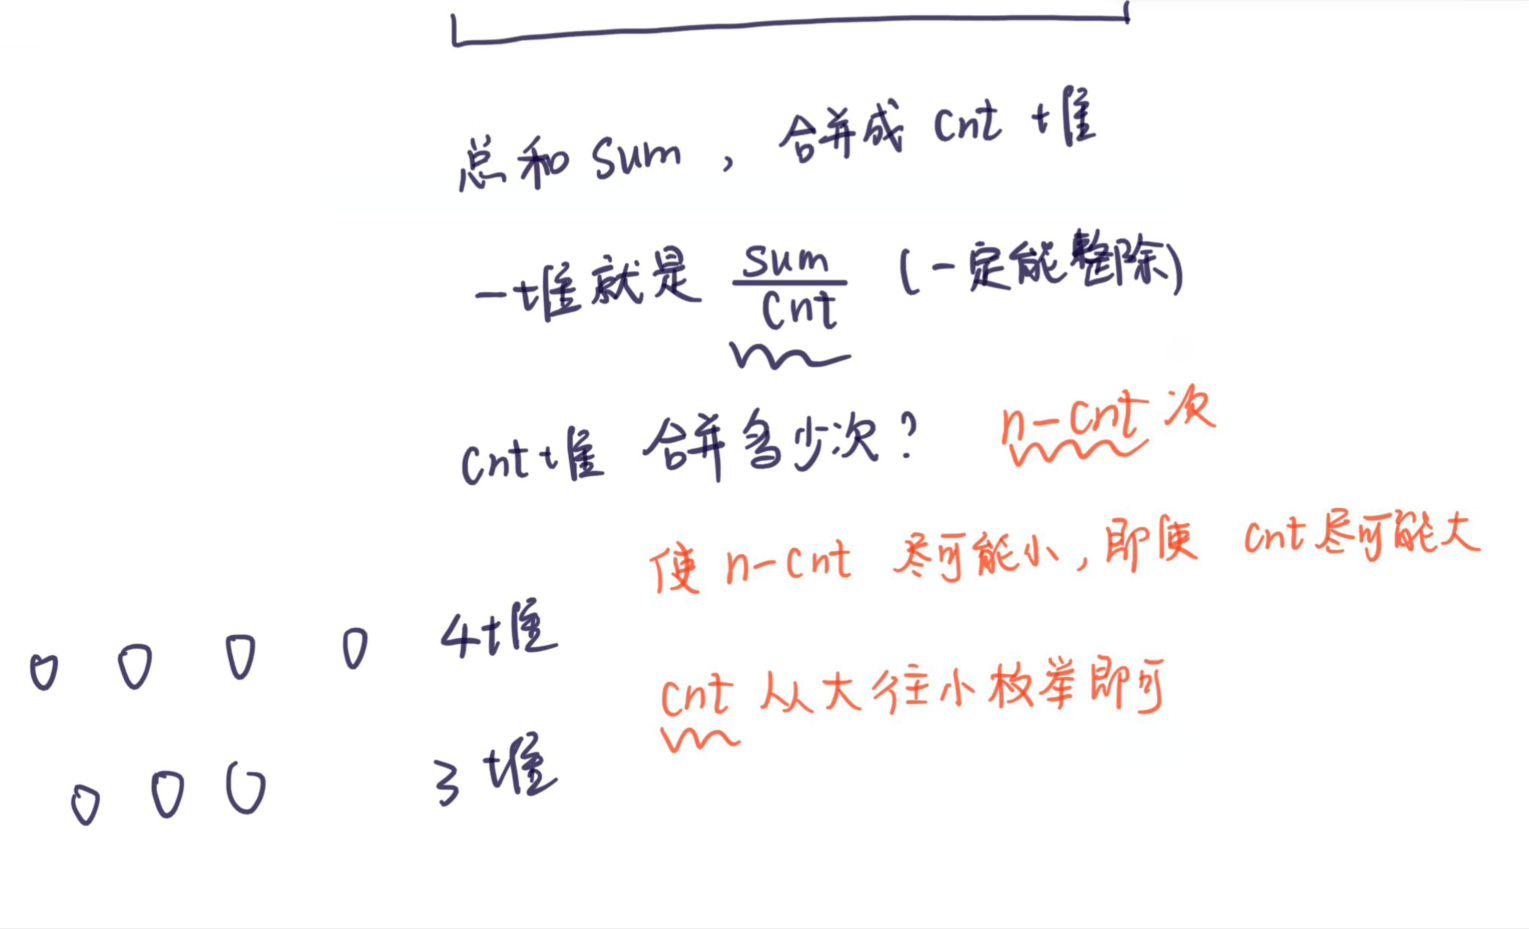 总和 sum ，合并成 cnt 堆
一堆就是 sum/cnt (一定能整除)
cnt堆 合并多少次？ n-cnt 次
使 n-cnt 尽可能小，即使 cnt尽可能大
4堆
cnt 从大往小枚举即可
3堆